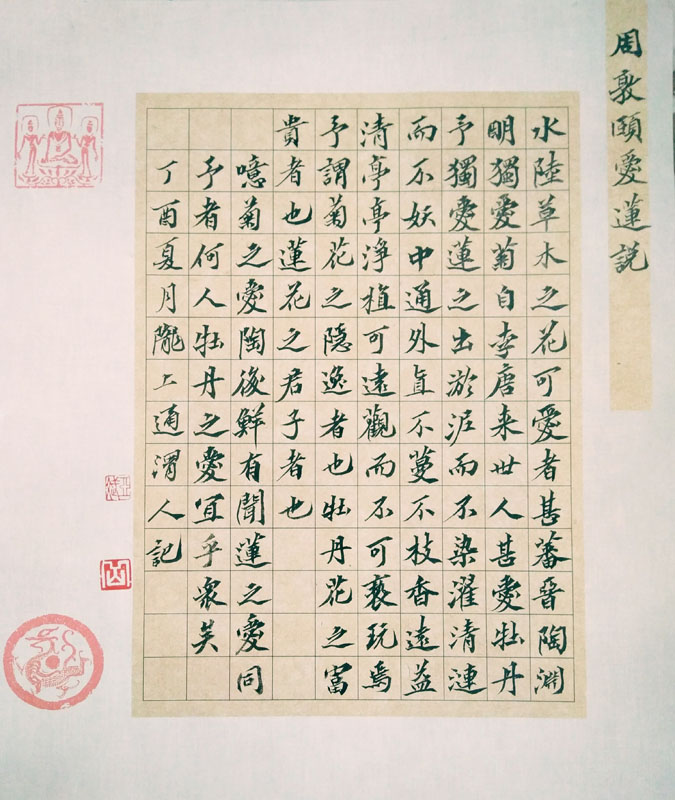 周敦頤愛蓮説
水陸草木之花可愛者甚蕃晉陶淵
明獨愛菊自李唐来世人甚愛牡丹
予獨愛蓮之出淤泥而不染濯清漣
而不妖中通外直不蔓不枝香遠益
清亭亭淨植可遠觀而不可褻玩焉
予謂菊花之隐逸者也牡丹花之富
貴者也蓮花之君子者也
噫菊之愛陶後鮮有聞蓮之愛同
予者何人牡丹之愛宜乎衆矣
丁酉夏月隴上通渭人記